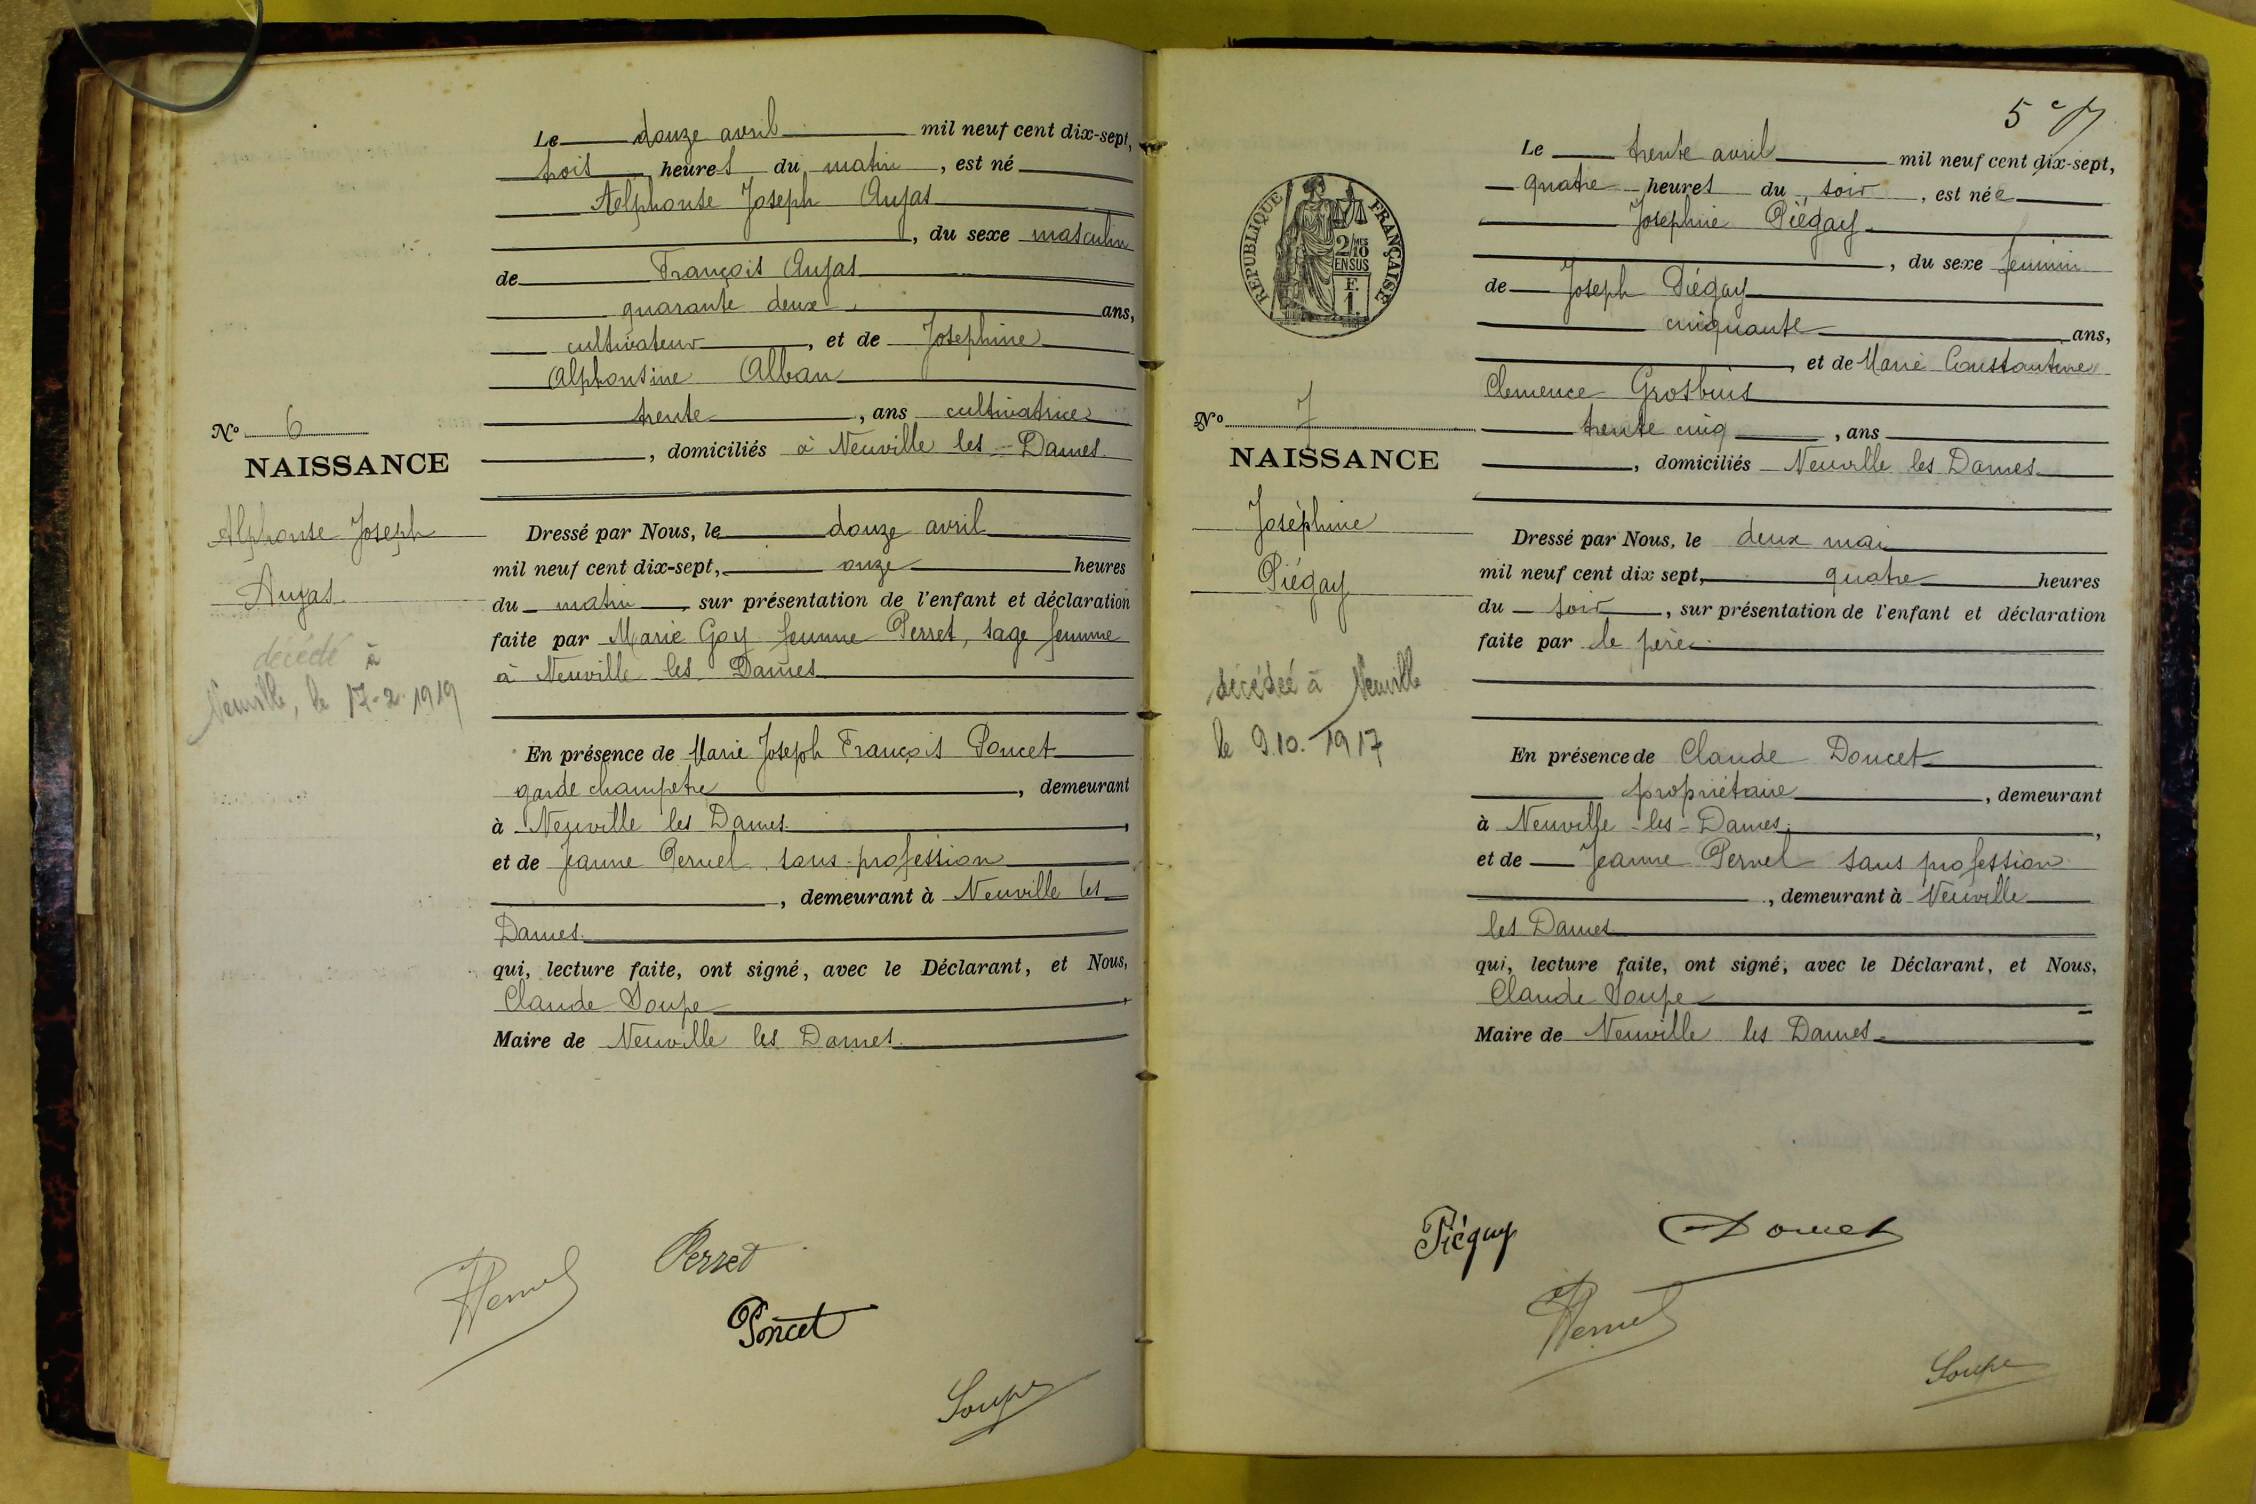 Le douze avril mil neuf cent dix-sept,
trois heures du matin, est né
Aelphonse Joseph Aujas
, du sexe masculin
de François Aujas
quarante deux ans,
cultivateur, et de Josephine
Alphonsine Alban
trente, ans cultivatrice
, domiciliés à Neuville les-Dames.
Nº 6
NAISSANCE
Alphonse Joseph
Aujas
décédé à
Neuville, le 17-2-1919
Dressé par Nous, le douze avril
mil neuf cent dix-sept, onze heures
du matin, sur présentation de l'enfant et déclaration
faite par Marie Goy femme Perret, sage femme
à Neuville les Dames
En présence de Marie Joseph François Poncet
garde champetre, demeurant
à Neuville les Dames.,
et de Jeanne Pernel sans profession
, demeurant à Neuville les
Dames.
qui, lecture faite, ont signé, avec le Déclarant, et Nous,
Claude Soupe,
Maire de Neuville les Dames.
Pernel
Perret
Poncet
Soupe
5e
Le trente avril mil neuf cent dix-sept,
quatre heures du soir, est née
Josephine Piégay
, du sexe feminin
de Joseph Piégay
cinquante ans,
, et de Marie Constantine
Clemence Grosbuis
trente cinq, ans
, domiciliés Neuville les Dames
RÉPUBLIQUE FRANÇAISE
2/10 MES
EN SUS
F.
1.
Nº 7
NAISSANCE
Joséphine
Piégay
décédée à Neuville
le 9.10.1917
Dressé par Nous, le deux mai
mil neuf cent dix sept, quatre heures
du soir, sur présentation de l'enfant et déclaration
faite par le père.
En présence de Claude Doucet
propriétaire, demeurant
à Neuville-les-Dames.,
et de Jeanne Pernel sans profession
, demeurant à Neuville
les Dames
qui, lecture faite, ont signé, avec le Déclarant, et Nous,
Claude Soupe
Maire de Neuville les Dames.
Piégay
Doucet
Pernel
Soupe